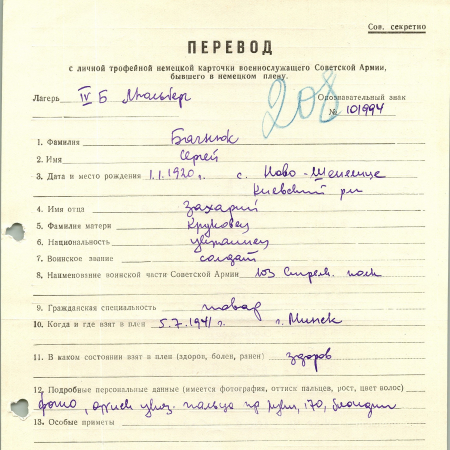 Сов. секретно
ПЕРЕВОД
с личной трофейной немецкой карточки военнослужащего Советской Армии,
бывшего в немецком плену.
208
Лагерь IV Б Мюльберг Опознавательный знак
№ 101994
1. Фамилия Багнюк
2. Имя Сергей
3. Дата и место рождения 1.1.1920 г. с. Ново-Шепелице
Киевский рн
4. Имя отца Захарий
5. Фамилия матери Круковец
6. Национальность украинец
7. Воинское звание солдат
8. Наименование воинской части Советской Армии 103 Стрел. полк
9. Гражданская специальность повар
10. Когда и где взят в плен 5.7.1941 г. г. Минск
11. В каком состоянии взят в плен (здоров, болен, ранен) здоров
12. Подробные персональные данные (имеется фотография, оттиск пальцев, рост, цвет волос)
фото, оттиск указ. пальца пр руки, 170, блондин
13. Особые приметы